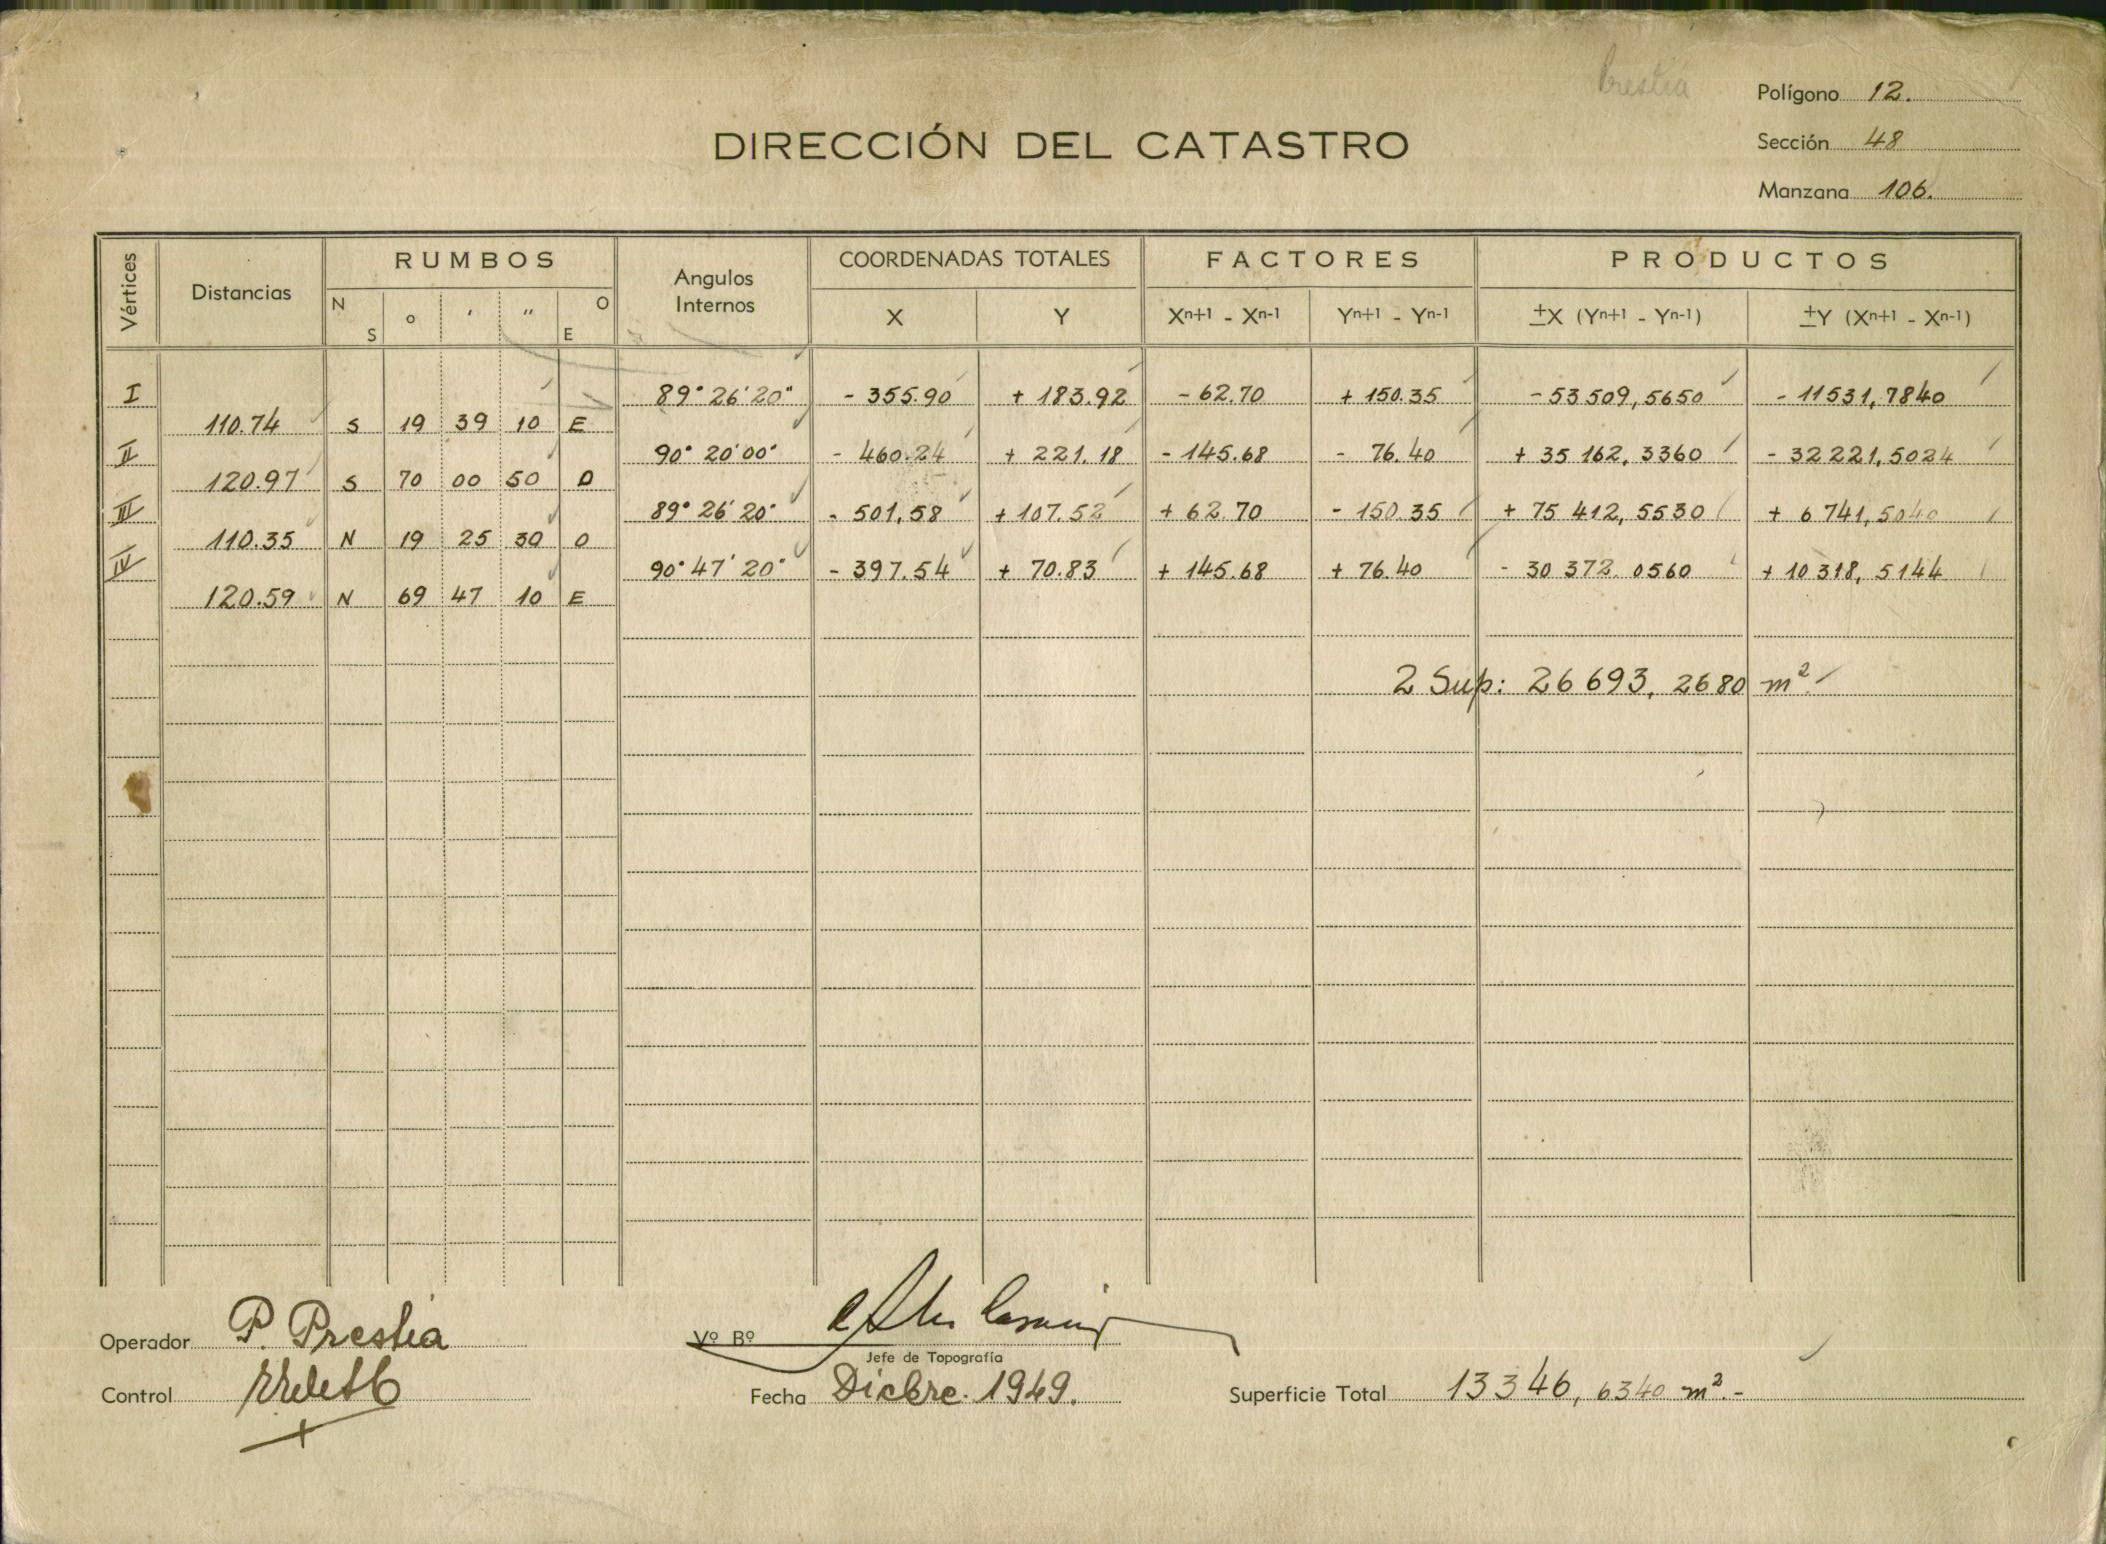 Prestia
Polígono 12.
DIRECCIÓN DEL CATASTRO
Sección 48
Manzana 106.
Vértices Distancias RUMBOS Angulos Internos COORDENADAS TOTALES FACTORES PRODUCTOS
N S ° ' " O E X Y Xn+1 - Xn-1 Yn+1 - Yn-1 ±X (Yn+1 - Yn-1) ±Y (Xn+1 - Xn-1)
I 89° 26' 20" - 355.90 + 183.92 - 62.70 + 150.35 - 53 509,5650 - 11531,7840
110.74 S 19 39 10 E
II 90° 20' 00" - 460.24 + 221.18 - 145.68 - 76.40 + 35 162,3360 - 32 221,5024
120.97 S 70 00 50 O
III 89° 26' 20" - 501,58 + 107.52 + 62.70 - 150.35 + 75 412,5530 + 6 741,5040
110.35 N 19 25 30 O
IV 90° 47' 20" - 397.54 + 70.83 + 145.68 + 76.40 - 30 372.0560 + 10 318,5144
120.59 N 69 47 10 E
2 Sup: 26 693,2680 m²
Operador P. Prestia
Vº Bº
Jefe de Topografía
Control
Fecha Dicbre. 1949.
Superficie Total 13346,6340 m².-